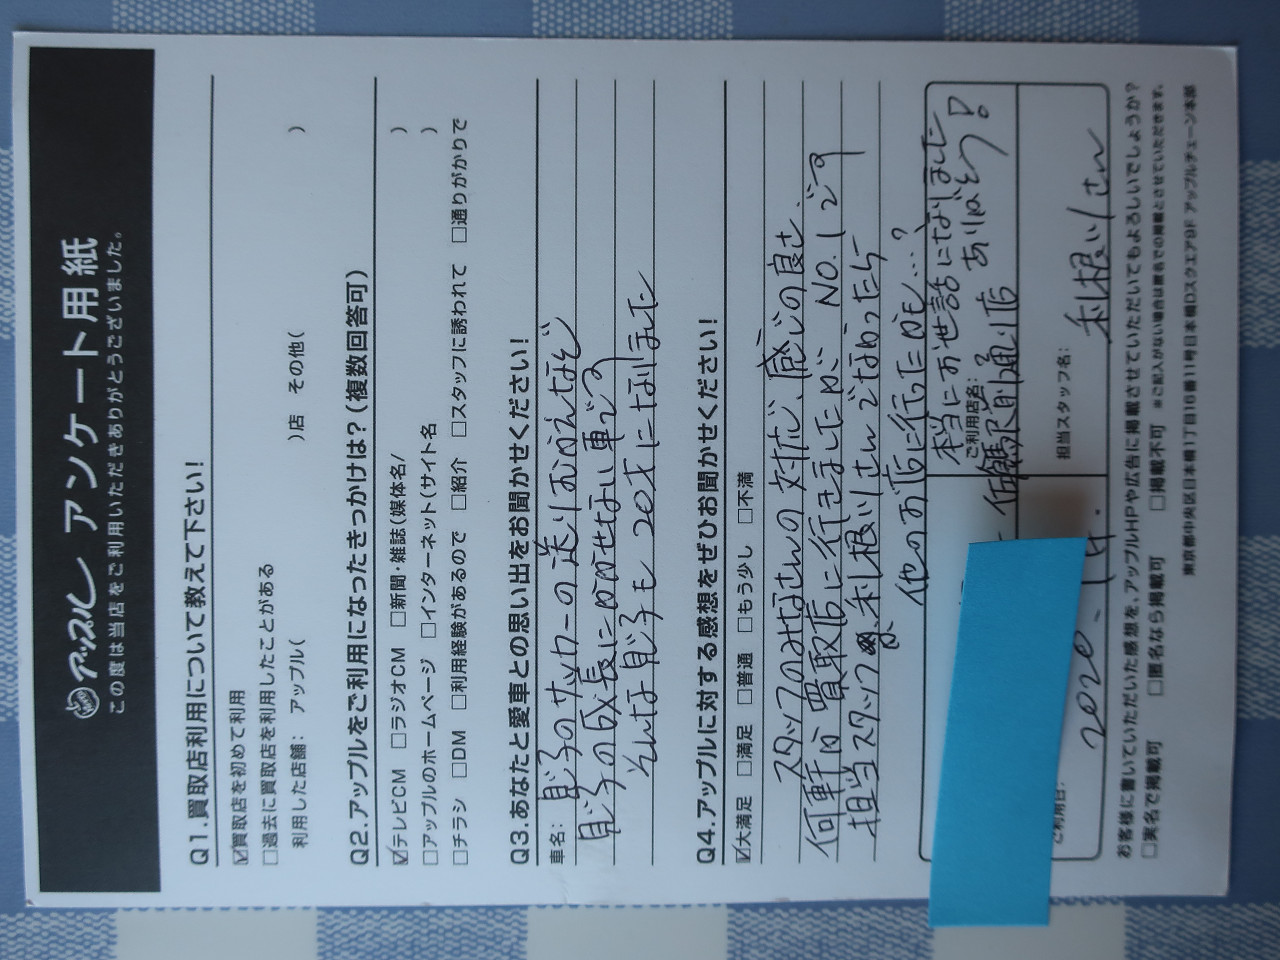 アップル アンケート用紙
この度は当店をご利用いただきありがとうございました。
Q1.買取店利用について教えて下さい!
☑買取店を初めて利用
□過去に買取店を利用したことがある
利用した店舗: アップル( )店 その他( )
Q2.アップルをご利用になったきっかけは?(複数回答可)
☑テレビCM □ラジオCM □新聞・雑誌(媒体名/ )
□アップルのホームページ □インターネット(サイト名 )
□チラシ □DM □利用経験があるので □紹介 □スタッフに誘われて □通りがかりで
Q3.あなたと愛車との思い出をお聞かせください!
車名: 息子のサッカーの送りむかえなど
息子の成長にかかせない車です
そんな息子も20才になりました
Q4.アップルに対する感想をぜひお聞かせください!
☑大満足 □満足 □普通 □もう少し □不満
スタッフのみなさんの対応、感じの良さ、
何軒か買取店に行きましたが NO.1です
担当スタッフが、利根川さんでなかったら
他のお店に行ったかも…?
本当にお世話になりました
ありがとう!
ご利用店名:
駅前通り店
担当スタッフ名:
利根川さん
ご利用日:
お客様に書いていただいた感想を、アップルHPや広告に掲載させていただいてもよろしいでしょうか?
□実名で掲載可 □匿名なら掲載可 □掲載不可 ※ご記入がない場合は匿名での掲載とさせていただきます。
東京都中央区日本橋1丁目16番11号日本橋Dスクエア9F アップルチェーン本部